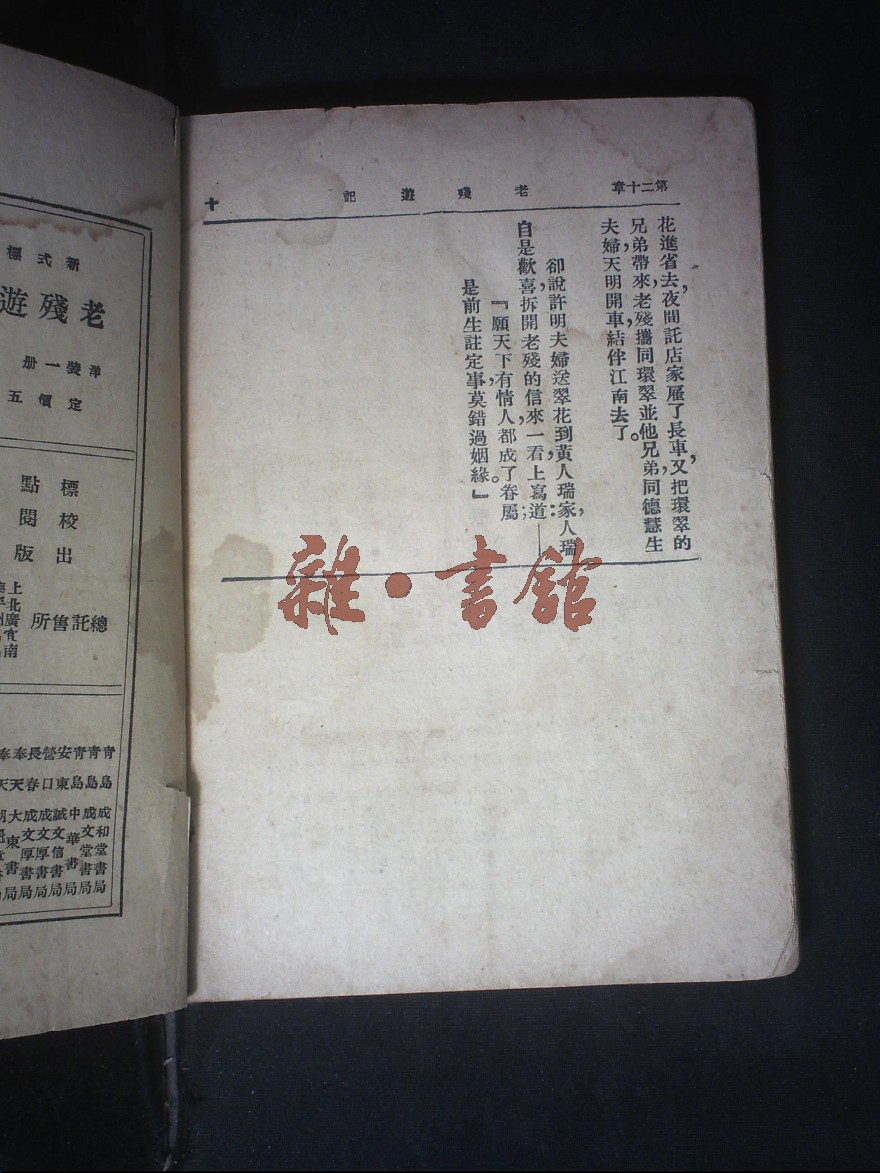 第二十章
老殘遊記
十
花進省去，夜間託店家雇了長車，又把環翠的
兄弟帶來，老殘攜同環翠並他兄弟同德慧生
夫婦天明開車，結伴江南去了。
卻說許明夫婦送翠花到黃人瑞家，人瑞
自是歡喜，拆開老殘的信來一看，上寫道：——
『願天下有情人，都成了眷屬；
是前生註定事，莫錯過姻緣。』
雜·書館
新式標
老殘遊
洋裝一册
定價五
標點
校閱
出版
總託售所
上
北
廣
南
青島成和堂書局
青島成文堂書局
青島中華書局
安東誠文信書局
營口成文厚書局
長春成文厚書局
奉天大東書局
奉天